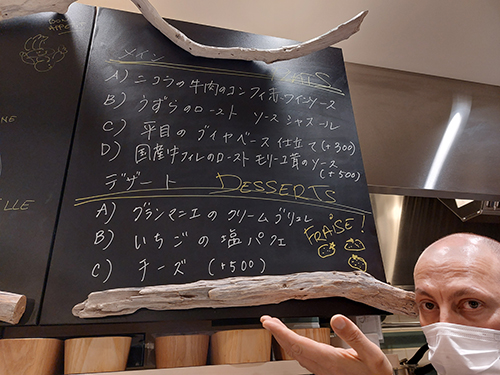 BON
APPÉ
メイン PLATS
A) ニコラの牛肉のコンフィ 赤ワインソース
B) うずらのロースト ソース シャスール
C) 平目のブイヤベース仕立て (+300)
D) 国産牛フィレのロースト モリーユ茸のソース
(+500)
デザート DESSERTS
A) グランマニエのクリームブリュレ
B) いちごの塩パフェ
C) チーズ (+500)
FRAISE!
NE
LLE